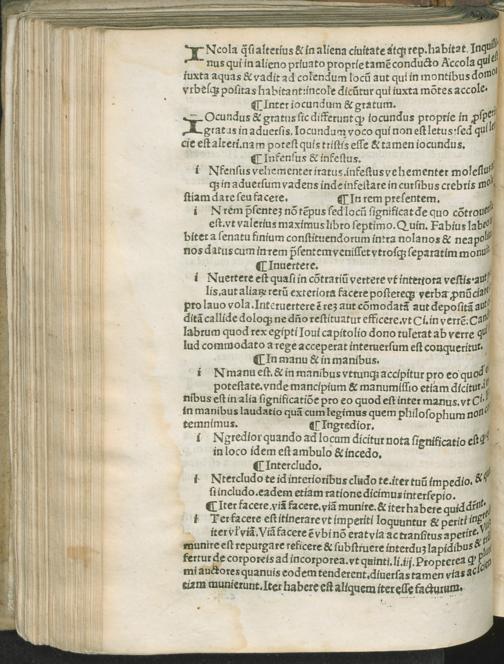 INcola q̃si alterius & in aliena ciuitate atq; rep. habitat. Inquili
nus qui in alieno priuato proprie tamē conducto Accola qui est
iuxta aquas & vadit ad colendum locū aut qui in montibus domos
vrbesq; positas habitant: incole dicūtur qui iuxta mōtes accole.
¶ Inter iocundum & gratum.
IOcundus & gratus sic differunt ꝙ iocundus proprie in ꝓsperis
gratus in aduersis. Iocundum voco qui non est letus: sed qui le
cie est alteri. nam potest quis tristis esse & tamen iocundus.
¶ Infensus & infestus.
i Nfensus vehementer iratus. infestus vehementer molestus
q; in aduersum vadens inde infestare in cursibus crebris mole
stiam dare seu facere. ¶ In rem presentem.
i N rem p̄sentez nō tēpus sed locū significat de quo cōtrouersia
est. vt valerius maximus libro septimo. Quin. Fabius labeo
biter a senatu finium constituendorum intra nolanos & neapolita
nos datus cum in rem p̄sentem venisset vtrosq; separatim monuit
¶ Inuertere.
i Nuertere est quasi in cōtrariū vertere vt interiora vestis aut
lis, aut aliaꝝ rerū exteriora facere postereq; verba ꝓnūciare
pro lauo vola. Interuertere ē rez aut cōmodatā aut depositā aut
ditā callide doloq; ne dn̄o restituatur efficere. vt Ci. in verrē. Cande
labrum quod rex egipti Ioui capitolio dono tulerat ab verre qui
lud commodato a rege acceperat interuersum est conqueritur.
¶ In manu & in manibus.
i N manu est, & in manibus vtrunq; accipitur pro eo quod
potestate. vnde mancipium & manumissio etiam dicitur.
nibus est in alia significatiōe pro eo quod est inter manus. vt Ci.
in manibus laudatio quā cum legimus quem philosophum non
temnimus. ¶ Ingredior.
i Ngredior quando ad locum dicitur nota significatio est
in loco idem est ambulo & incedo.
¶ Intercludo.
i Ntercludo te id interioribus cludo te. iter tuū impedio. &
si includo. eadem etiam ratione dicimus intersepio.
¶ Iter facere. viā facere, viā munire. & iter habere quid dr̄nt.
i Ter facere est itinerare vt imperiti loquuntur & periti ingredi
iter vl̓ viā. Viā facere ē vbi nō erat via ac transitus aperire. Viā
munire est repurgare reficere & substruere interduz lapidibus &
fertur de corporeis ad incorporea. vt quinti. li. iij. Propterea ꝙ
mi auctores quanuis eodem tenderent, diuersas tamen vias
eiam munierunt. Iter habere est aliquem iter esse facturum.